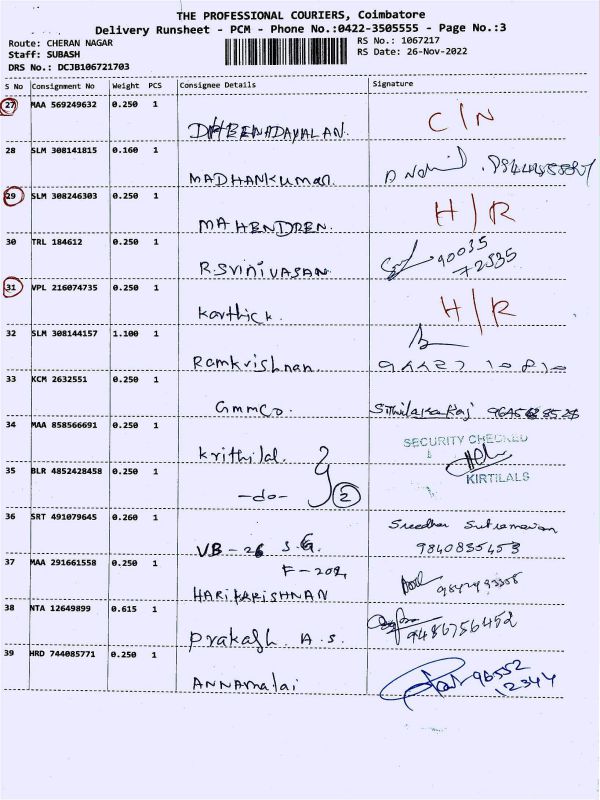 THE PROFESSIONAL COURIERS, Coimbatore
Delivery Runsheet - PCM - Phone No.:0422-3505555 - Page No.:3
Route: CHERAN NAGAR
RS No.: 1067217
Staff: SUBASH
RS Date: 26-Nov-2022
DRS No.: DCJB106721703
S No Consignment No Weight PCS Consignee Details Signature
27 MAA 569249632 0.250 1
DHBENADAYALAN. C/N
28 SLM 308141815 0.160 1
MADHANKumar.
29 SLM 308246303 0.250 1
MAHENDREN. H/R
30 TRL 184612 0.250 1
R.SVINIVASAN 90035
72535
31 VPL 216074735 0.250 1
Karthick. H/R
32 SLM 308144157 1.100 1
Ramkrishnan.
33 KCM 2632551 0.250 1
GMMCO.
34 MAA 858566691 0.250 1
SECURITY CHECKED
Krithilal.
KIRTILALS
35 BLR 4852428458 0.250 1
-do- 2
36 SRT 491079645 0.260 1
Sreedhar
VB-26 S.G. 9840835453
F-202,
37 MAA 291661558 0.250 1
HARIKARISHNAN
38 NTA 12649899 0.615 1
Prakash A.S. 9486756452
39 HRD 744085771 0.250 1
ANNAmalai 96552
12344